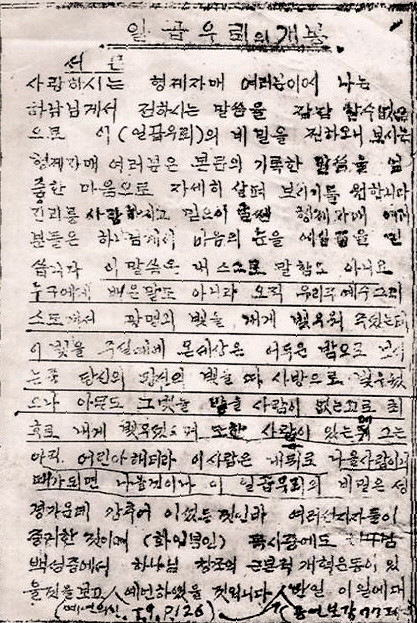 일곱우뢰의개봉
서론
사랑하시는 형제자매 여러분이여 나는
하나님게서 전하시는 말씀을 감당 할수없음
으로 이 (일곱우뢰)의 비밀을 전하오니 보시는
형제자매 여러분은 본문의 기록한 말씀을
중한 마음으로 자세히 살펴 보시기를 원합니다
진리를 사랑하시고 믿음이 형제자매 여러
분들은 하나님게서 마음의 눈을
이 말씀은 내 스스로 말함도 아니요
누구에게 배운말도 아니라 오직 우리주예수그리
스도게서 광명의 빛을 내게 빛우워 주셨는데
이 빛을 주실때에 온세상은 어두운 밤으로 보시
는중 당신의 당신의 빛을 사방으로 빛우웠
으나 아무도 그빛을 받을 사람이 없는고로 최
후로 내게 빛우웠으며 또한 사람이 있는데 그는
아직 어린아해띠라 이사람은 내뒤로 나올사람이
때가되면 나올것이나 이 일곱우뢰의 비밀은 성
경가운데 감추어 있었든 것인바 여러선지자들이
증거한 것이며 (화일북인) 묵시중에도
백성중에서 하나님 창조의 근본적 개혁운동이 있
을것을보고 예언하였을 것입니다 만일 이일에대